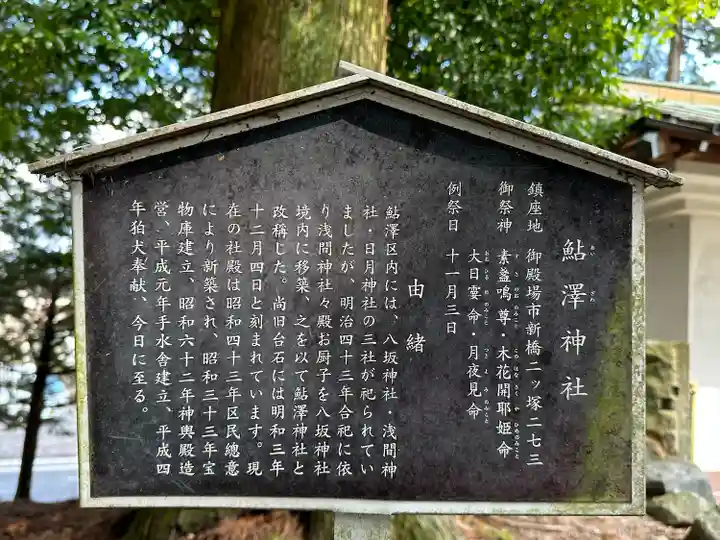 鮎澤神社
あいざわ
鎮座地 御殿場市新橋二ッ塚二七三
御祭神 素盞鳴尊・木花開耶姫命
すさのおのみこと このはなさくやひめのみこと
大日孁命・月夜見命
おおひるめのみこと つきよみのみこと
例祭日 十一月三日
由緒
鮎澤区内には、八坂神社・浅間神
社・日月神社の三社が祀られてい
ましたが、明治四十三年合祀に依
り浅間神社々殿お厨子を八坂神社
境内に移築、之を以て鮎澤神社と
改稱した。尚旧台石には明和三年
十二月四日と刻まれています。現
在の社殿は昭和四十三年区民總意
により新築され、昭和三十三年宝
物庫建立、昭和六十二年神輿殿造
営、平成元年手水舎建立、平成四
年狛犬奉献、今日に至る。